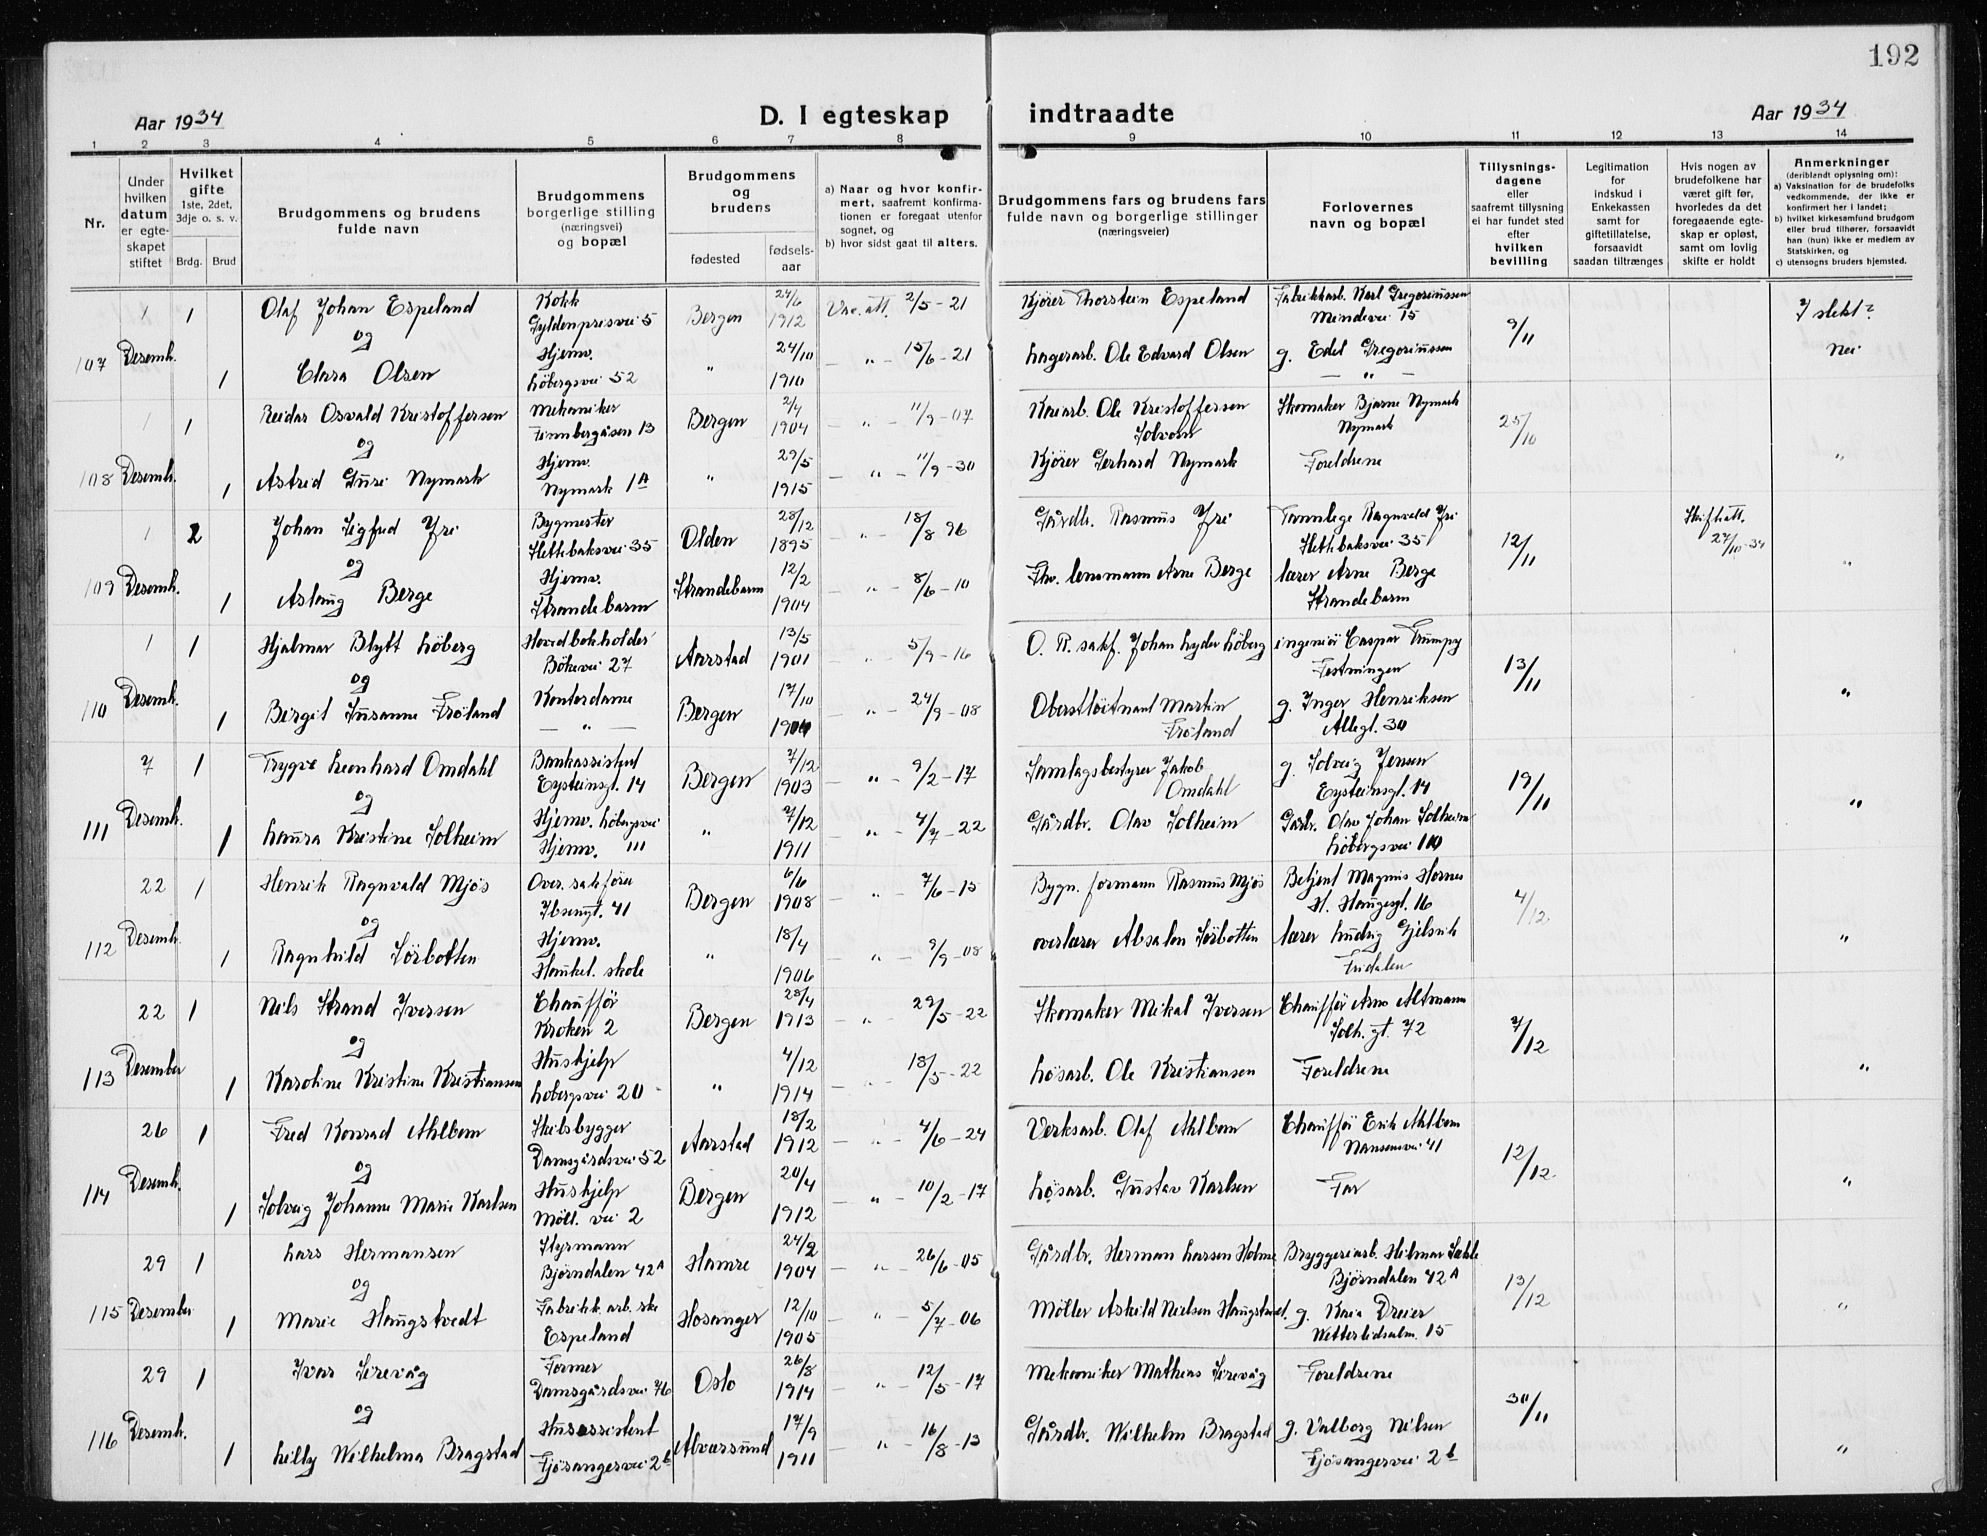 192
Aar 1934
D. I egteskap indtraadte
Aar 1934
1 2 3 4 5 6 7 8 9 10 11 12 13 14
Nr.
Under hvilken datum er egte-skapet stiftet
Hvilket gifte 1ste, 2det, 3dje o. s. v.
Brdg. Brud
Brudgommens og brudens fulde navn
Brudgommens borgerlige stilling (næringsvei) og bopæl
Brudgommens og brudens
fødested
fødsels-aar
a) Naar og hvor konfir-mert, saafremt konfirma-tionen er foregaat utenfor sognet, og
b) hvor sidst gaat til alters.
Brudgommens fars og brudens fars fulde navn og borgerlige stillinger (næringsveier)
Forlovernes navn og bopæl
Tillysnings-dagene eller saafremt tillysning ei har fundet sted efter hvilken bevilling
Legitimation for indskud i Enkekassen samt for giftetillatelse, forsaavidt saadan tiltrænges
Hvis nogen av brudefolkene har været gift før, hvorledes da det foregaaende egte-skap er opløst, samt om lovlig skifte er holdt
Anmerkninger (deriblandt oplysning om):
a) Vaksination for de brudefolks vedkommende, der ikke er konfirmert her i landet;
b) hvilket kirkesamfund brudgom eller brud tilhører, forsaavidt han (hun) ikke er medlem av Statskirken, og
c) utensogns bruders hjemsted.
107 1 Desemb. 1 Olaf Johan Espeland Kokk Gyldenprisvei 5 Bergen 24/6 1912 Vac. att. 2/5 - 21 Kjører Thorstein Espeland Fabrikkarb. Karl Gregoriussen Mindevei 15 9/11 I slekt?
og
1 Clara Olsen Hjemv. Løbergsvei 52 " 24/10 1910 - " - 15/6 - 21 Lagerarb. Ole Edvard Olsen g. Edel Gregoriussen - " - Nei
108 1 Desemb. 1 Reidar Osvald Kristoffersen Mekaniker Finnbergåsen 13 Bergen 2/4 1904 - " - 11/9 - 07 Kaiarb. Ole Kristoffersen Solvorn Skomaker Bjarne Nymark Nymark 25/10
og
1 Astrid Guri Nymark Hjemv. Nymark 1A " 29/5 1915 - " - 11/9 - 30 Kjører Gerhard Nymark Foreldrene "
109 1 Desemb. 2 Johan Sigfred Yri Bygmester Slettebaksvei 35 Olden 28/12 1895 - " - 18/8 96 Gårdbr. Rasmus Yri Tannlege Ragnvald Yri Slettebaksvei 35 12/11 Skifteatt. 27/10-34
og
1 Aslaug Berge Hjemv. Strandebarm Strandebarm 12/2 1904 - " - 8/6 - 10 Fhv. lensmann Arne Berge lærer Arne Berge Strandebarm "
110 1 Desemb. 1 Hjalmar Blytt Løberg Hovedbokholder Bøkevei 27 Aarstad 13/5 1901 - " - 5/9 - 16 O. R. sakf. Johan Lyder Løberg ingeniør Caspar Trumpy Festningen 13/11
og
1 Birgit Susanne Frøland Kontordame - " - Bergen 17/10 - " - 24/9 - 08 Oberstløitnant Martin Frøland g. Inger Henriksen Allegt. 30 "
111 7 Desemb. 1 Trygve Leonhard Omdahl Bankassistent Eysteinsgt. 14 Bergen 7/12 1903 - " - 9/2 - 17 Samlagsbestyrer Jakob Omdahl g. Solveig Jensen Eysteinsgt. 14 19/11
og
1 Laura Kristine Solheim Hjemv. Løbergsvei Hjemv. 111 " 7/12 1911 - " - 4/7 - 22 Gårdbr. Olav Solheim Gårdbr. Olav Johan Solheim Løbergsvei "
112 22 Desemb. 1 Henrik Ragnvald Mjøs Over. sakfører Ibsensgt. 41 Bergen 6/6 1908 " - 7/6 - 15 Bygn. formann Rasmus Mjøs Betjent Magnus Hornes H. Haugesgt. 16 4/12
og
1 Ragnhild Sørbotten Hjemv. Haukel. skole " 18/4 1906 - " - 9/9 - 08 overlærer Absalon Sørbotten lærer Ludvig Gjelsvik Fridalen "
113 22 Desember 1 Nils Strand Iversen Chauffør Kroken 2 Bergen 28/4 1913 - " - 29/5 - 22 Skomaker Mikal Iversen Chauffør Arne Altmann Solh. gt. 72 7/12
og
1 Karoline Kristine Kristiansen Hushjelp Løbergsvei 20 " 4/12 1914 - " - 18/5 - 22 Løsarb. Ole Kristiansen Foreldrene "
114 26 Desemb. 1 Fred Konrad Ahlbom Skibsbygger Damsgårdsvei 52 Aarstad 18/2 1912 " - 4/6 - 24 Verksarb. Olaf Ahlbom Chauffør Erik Ahlbom Nansensvei 41 12/12
og
1 Solveig Johanne Marie Karlsen Hushjelp Møll. vei 2 Bergen 20/4 1912 - " - 10/2 - 17 Løsarb. Gustav Karlsen Far "
115 29 Desember 1 Lars Hermansen Styrmann Bjørndalen 42A Hamre 24/2 1904 - " - 26/6 - 05 Gårdbr. Herman Larsen Holme Bryggeriarb. Hilmar Sækle Bjørndalen 42A 13/12
og
1 Marie Haugstvedt Fabrikk. arb. ske Espeland Hosanger 12/10 1905 - " - 5/7 - 06 Møller Askild Nielsen Haugstvedt. g. Kaia Dreier Wetterlidsalm. 15 "
116 29 Desemb. 1 Ivar Sirevåg Former Damsgårdsvei 76 Oslo 26/8 1914 - " - 12/5 - 17 Mekaniker Mathias Sirevåg Foreldrene 30/11
og
1 Lilly Wilhelma Bragstad Husassistent Fjøsangervei 2b Alversund 17/9 1911 " - 16/8 - 13 Gårdbr. Wilhelm Bragstad g. Valborg Nilsen Fjøsangervei 2b "